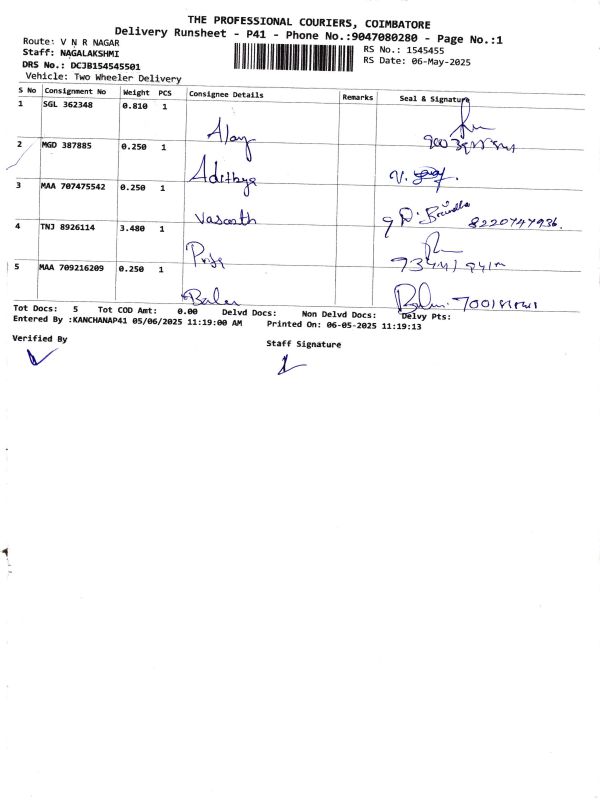 THE PROFESSIONAL COURIERS, COIMBATORE
Delivery Runsheet - P41 - Phone No.:9047080280 - Page No.:1
Route: V N R NAGAR
RS No.: 1545455
Staff: NAGALAKSHMI
RS Date: 06-May-2025
DRS No.: DCJB154545501
Vehicle: Two Wheeler Delivery
S No Consignment No Weight PCS Consignee Details Remarks Seal & Signature
1 SGL 362348 0.810 1
2 MGD 387885 0.250 1 Adithya
3 MAA 707475542 0.250 1 Vasanth 8220747936.
4 TNJ 8926114 3.480 1 Priya
5 MAA 709216209 0.250 1
Tot Docs: 5 Tot COD Amt: 0.00 Delvd Docs: Non Delvd Docs: Delvy Pts:
Entered By :KANCHANAP41 05/06/2025 11:19:00 AM Printed On: 06-05-2025 11:19:13
Verified By
Staff Signature